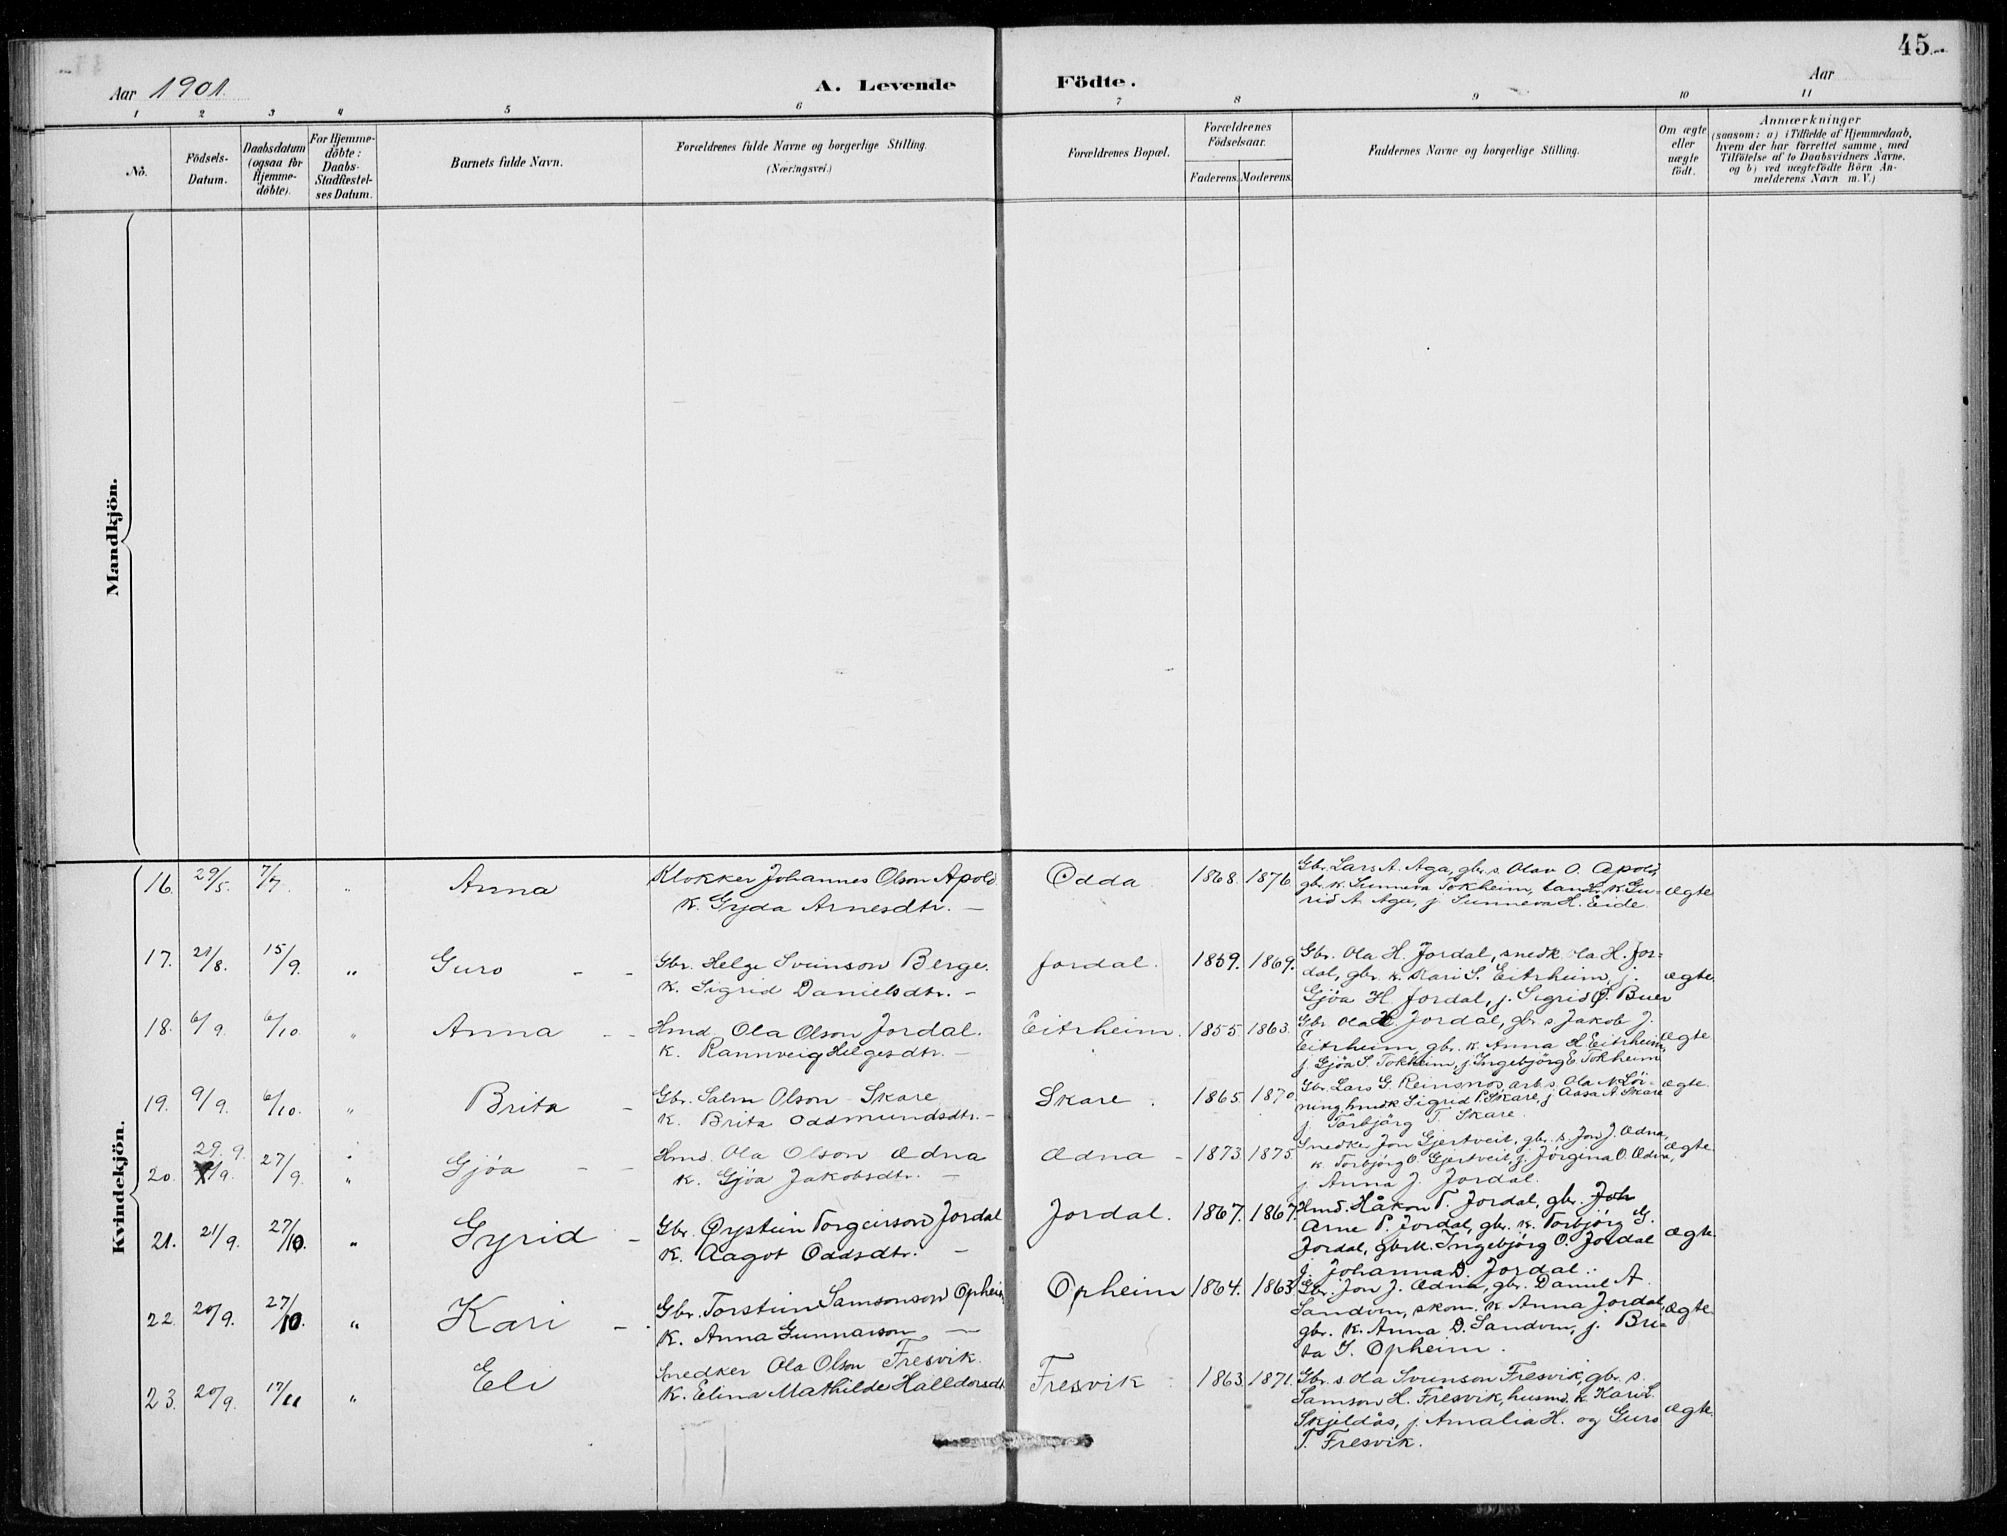 45.
Aar 1901.
A. Levende Födte.
Aar
1 2 3 4 5 6 7 8 9 10 11
No.
Födsels-Datum.
Daabsdatum (ogsaa for Hjemme-döbte).
For Hjemme-döbte: Daabs-Stadfæstel-ses Datum.
Barnets fulde Navn.
Forældrenes fulde Navne og borgerlige Stilling. (Næringsvei.)
Forældrenes Bopæl.
Forældrenes Födselsaar.
Faderens. Moderens.
Faddernes Navne og borgerlige Stilling.
Om ægte eller uægte födt.
Anmærkninger
(saasom: a) i Tilfælde af Hjemmedaab,
hvem der har forrettet samme, med
Tilföielse af to Daabsvidners Navne,
og b) ved uægtefödte Börn An-
melderens Navn m. V.)
Mandkjön.
Kvindekjön.
16. 29/5. 7/7. " Anna
Klokker Johannes Olson Apold
k. Gyda Arnesdtr. —
Odda. 1868. 1876.
Gbr. Lars A. Aga, gbr. s. Olav O. Apold,
gbr. k. Sunneva Tokheim, landh. k. Gu-
rid A. Aga, j. Sunneva H. Eide.
ægte
17. 21/8. 15/9. " Guro - -
Gbr. Helge Sveinson Berge.
k. Sigrid Danielsdtr. -
Jordal. 1859. 1869.
Gbr. Ola H. Jordal, snedk. Ola H. Jor-
dal, gbr. k. Kari S. Eitrheim, j.
Gjøa H. Jordal, j. Sigrid Buer
ægte.
18. 6/9. 6/10. " Anna - -
Hmd. Ola Olson Jordal.
k. Rannveig Helgesdtr. —
Eitrheim. 1855. 1863.
Gbr. Ola H. Jordal, gbr. s. Jakob J.
Eitrheim, gbr. k. Anna H. Eitrheim,
j. Gjøa S. Tokheim, j. Ingebjørg E. Tokheim
ægte
19. 9/9. 6/10. " Brita -
Gbr. Salm Olson Skare
k. Brita Oddmundsdtr. -
Skare. 1865. 1870.
Gbr. Lars G. Reinsnos, arb. s. Ola N. Löi-
ning, hmdk. Sigrid P. Skare, j. Aasa A. Skare
j. Torbjörg T. Skare.
ægte.
20. 29. 9. /9. 27/9. " Gjøa - -
Hmd. Ola Olson Ædna
k. Gjøa Jakobsdtr. —
Ædna - 1873. 1875.
Snedker Jon Gjertveit, gbr. s. Jon J. Ædna,
k. Torbjørg O. Gjertveit, j. Jørgina O. Ædna,
j. Anna J. Jordal.
ægte.
21. 21/9. 27/10. " Gyrid -
Gbr. Øystein Torgeirson Jordal
k. Aagot Oddsdtr. —
Jordal. 1867. 1867.
Hmd. Håkon T. Jordal, gbr. Joh
Arne P. Jordal, gbr. k. Torbjörg G.
Jordal, gbr. k. Ingebjörg O. Jordal
j. Johanna D. Jordal.
Ægte.
22. 20/9. 27/10. " Kari -
Gbr. Torstein Samsonson Opheim
k. Anna Gunnarson —
Opheim 1864. 1863.
Gbr. Jon J. Ædna, gbr. Daniel A.
Sandvin, skom. k. Anna Jordal,
gbr. k. Anna D. Sandvin, j. Bri-
ta T. Opheim.
ægte.
23. 20/9. 17/11 " Eli
Snedker Ola Olson Fresvik.
k. Elina Mathilde Halldorsdt.
Fresvik 1863. 1871.
Gbr. s. Ola Svenson Fresvik, gbr. s.
Samson H. Fresvik, husmd. k. Kari L.
Skjeldås, j. Amalia H. og Guro
T. Fresvik.
ægte.